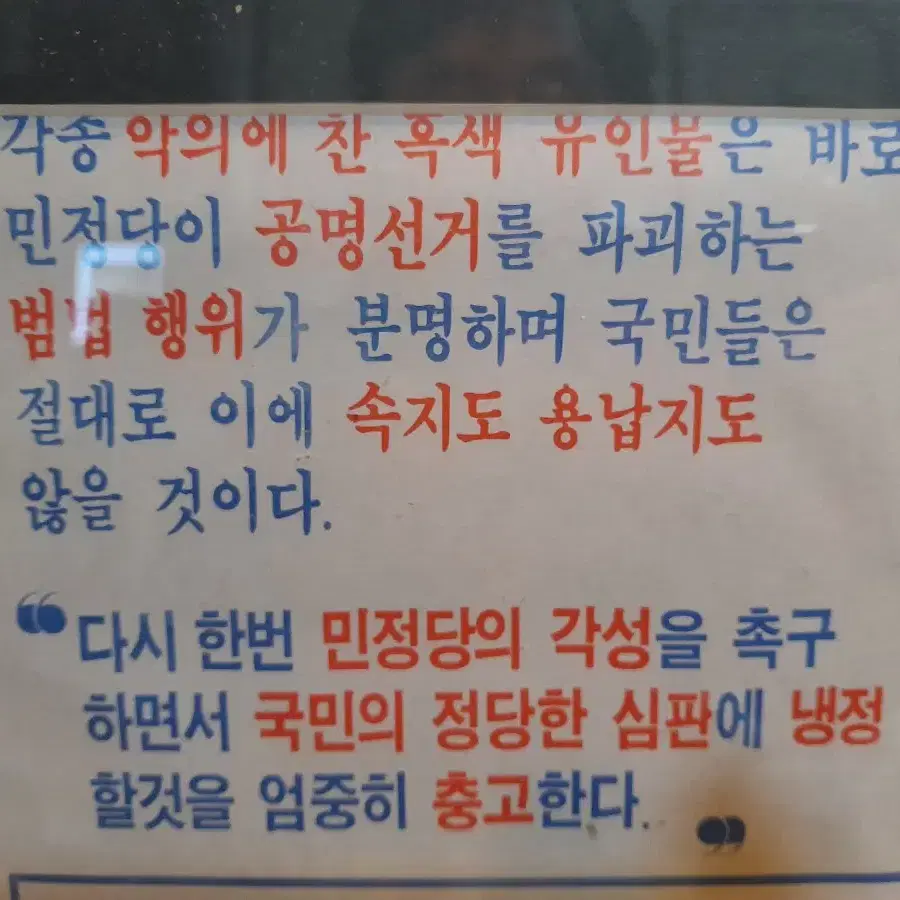 각종 악의에 찬 흑색 유인물은 바로
민정당이 공명선거를 파괴하는
범법 행위가 분명하며 국민들은
절대로 이에 속지도 용납지도
않을 것이다.
“다시 한번 민정당의 각성을 촉구
하면서 국민의 정당한 심판에 냉정
할것을 엄중히 충고한다.”